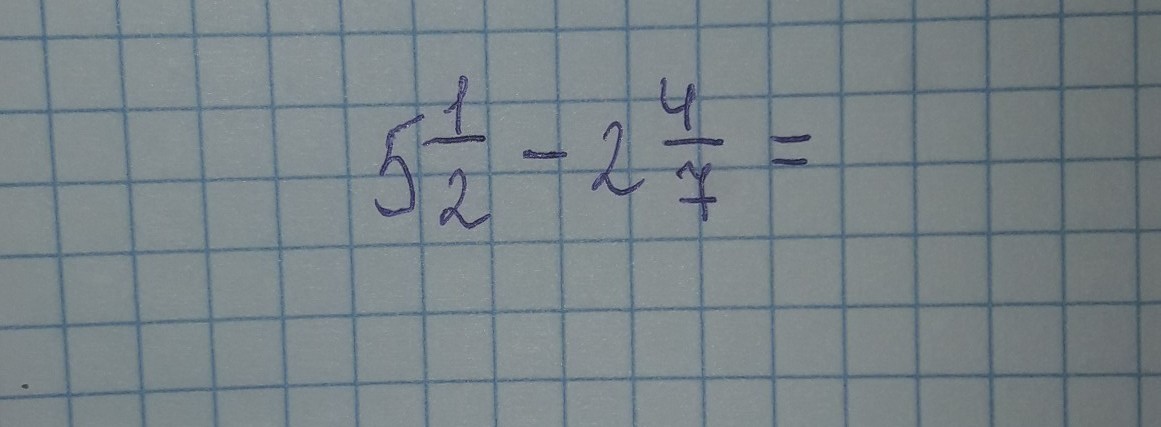 5 1/2 - 2 4/7 =